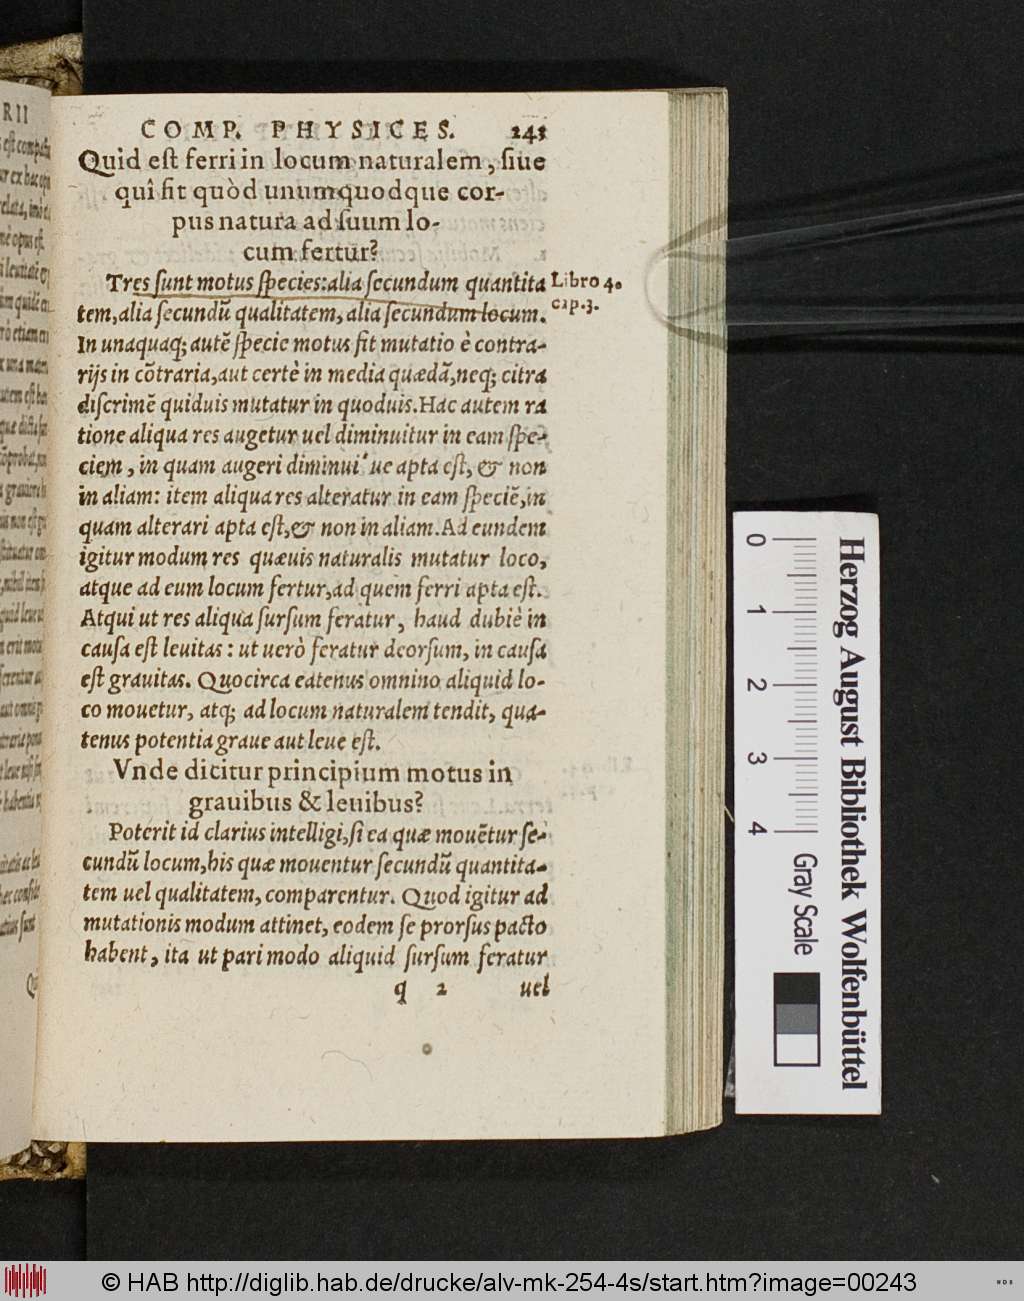 COMP. PHYSICES. 243
Quid eſt ferri in locum naturalem, ſiue
quî fit quòd unumquodque cor-
pus natura ad ſuum lo-
cum fertur?
Tres ſunt motus ſpecies: alia ſecundum quantita
Libro 4.
cap. 3.
tem, alia ſecundũ qualitatem, alia ſecundum locum.
In unaquaq; autẽ ſpecie motus fit mutatio è contra-
rijs in cõtraria, aut certè in media quædã, neq; citra
diſcrimẽ quiduis mutatur in quoduis. Hac autem ra
tione aliqua res augetur uel diminuitur in eam ſpe-
ciem, in quam augeri diminui ue apta eſt, & non
in aliam: item aliqua res alteratur in eam ſpeciẽ, in
quam alterari apta eſt, & non in aliam. Ad eundem
igitur modum res quæuis naturalis mutatur loco,
atque ad eum locum fertur, ad quem ferri apta eſt.
Atqui ut res aliqua ſurſum feratur, haud dubiè in
cauſa eſt leuitas: ut uerò feratur deorſum, in cauſa
eſt grauitas. Quocirca eatenus omnino aliquid lo-
co mouetur, atq; ad locum naturalem tendit, qua-
tenus potentia graue aut leue eſt.
Vnde dicitur principium motus in
grauibus & leuibus?
Poterit id clarius intelligi, ſi ea quæ mouẽtur ſe-
cundũ locum, his quæ mouentur ſecundũ quantita-
tem uel qualitatem, comparentur. Quod igitur ad
mutationis modum attinet, eodem ſe prorſus pacto
habent, ita ut pari modo aliquid ſurſum feratur
q 2 uel
0 1 2 3 4
Gray Scale
Herzog August Bibliothek Wolfenbüttel
© HAB http://diglib.hab.de/drucke/alv-mk-254-4s/start.htm?image=00243